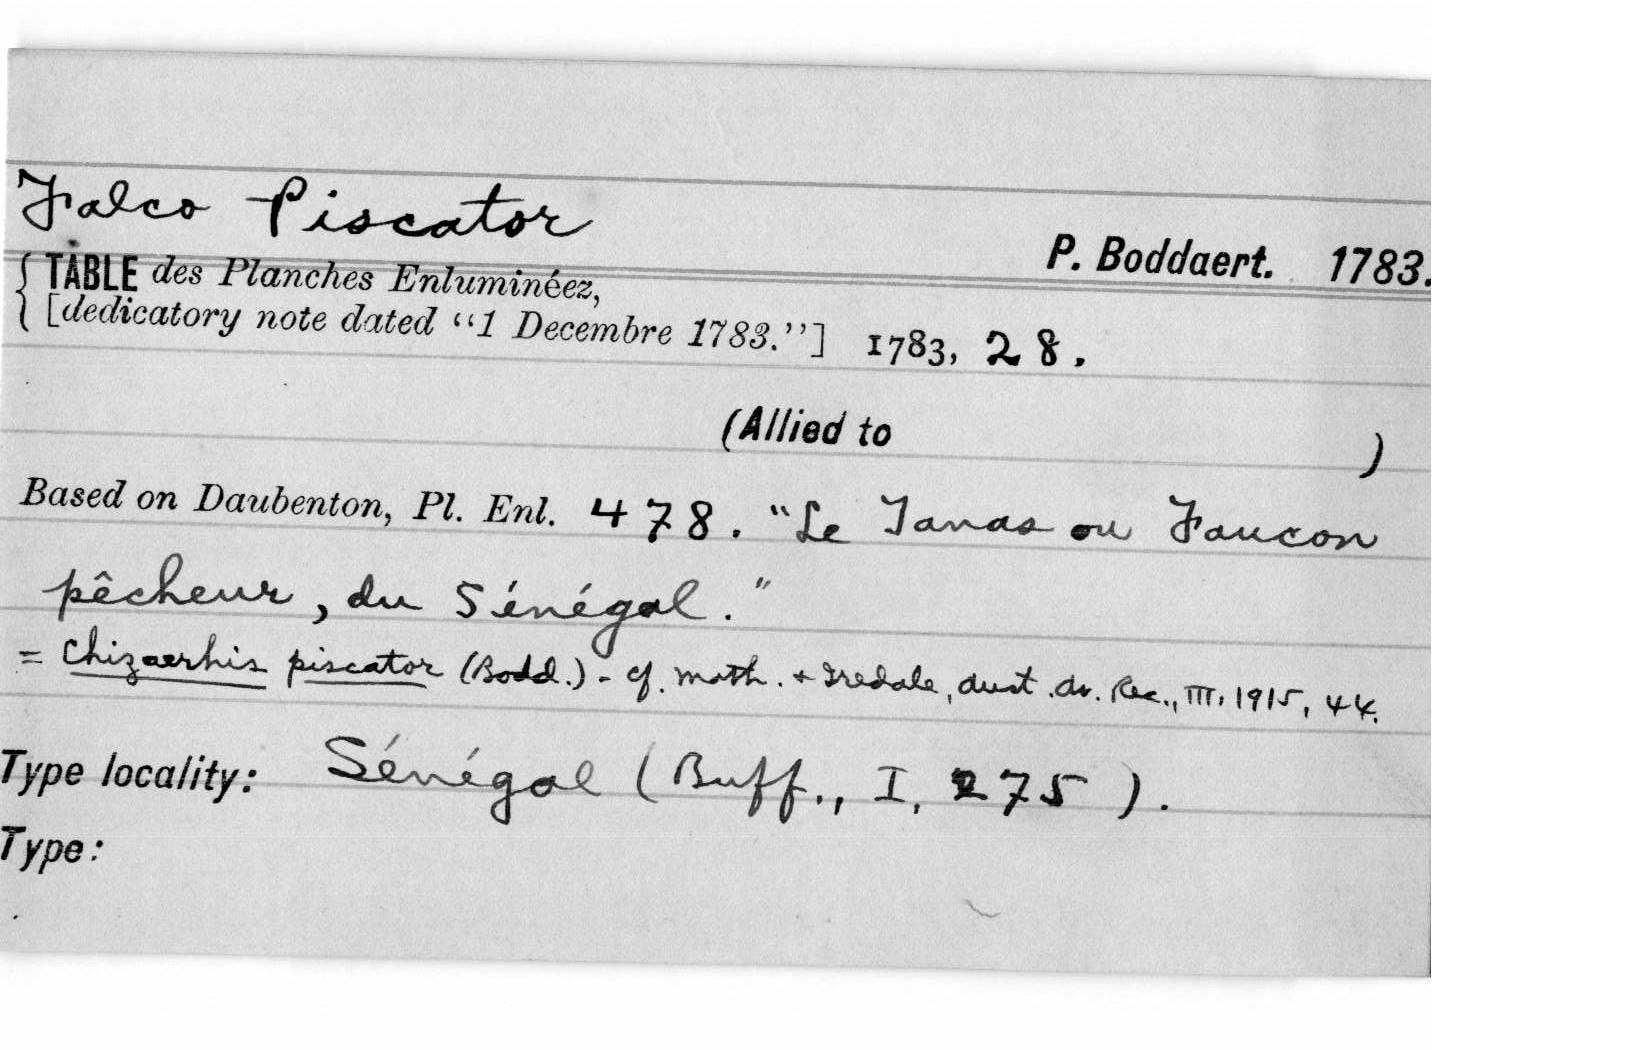 Falco Piscator
P. Boddaert. 1783.
{ TABLE des Planches Enluminéez,
[dedicatory note dated “1 Decembre 1783.”] 1783, 28.
(Allied to )
Based on Daubenton, Pl. Enl. 478. "Le Tanas ou Faucon
pêcheur, du Sénégal."
= Chizaerhis piscator (Bodd.) - cf. Math. + Iredale, Aust. Av. Rec., III, 1915, 44.
Type locality: Sénégal (Buff., I, 275).
Type: